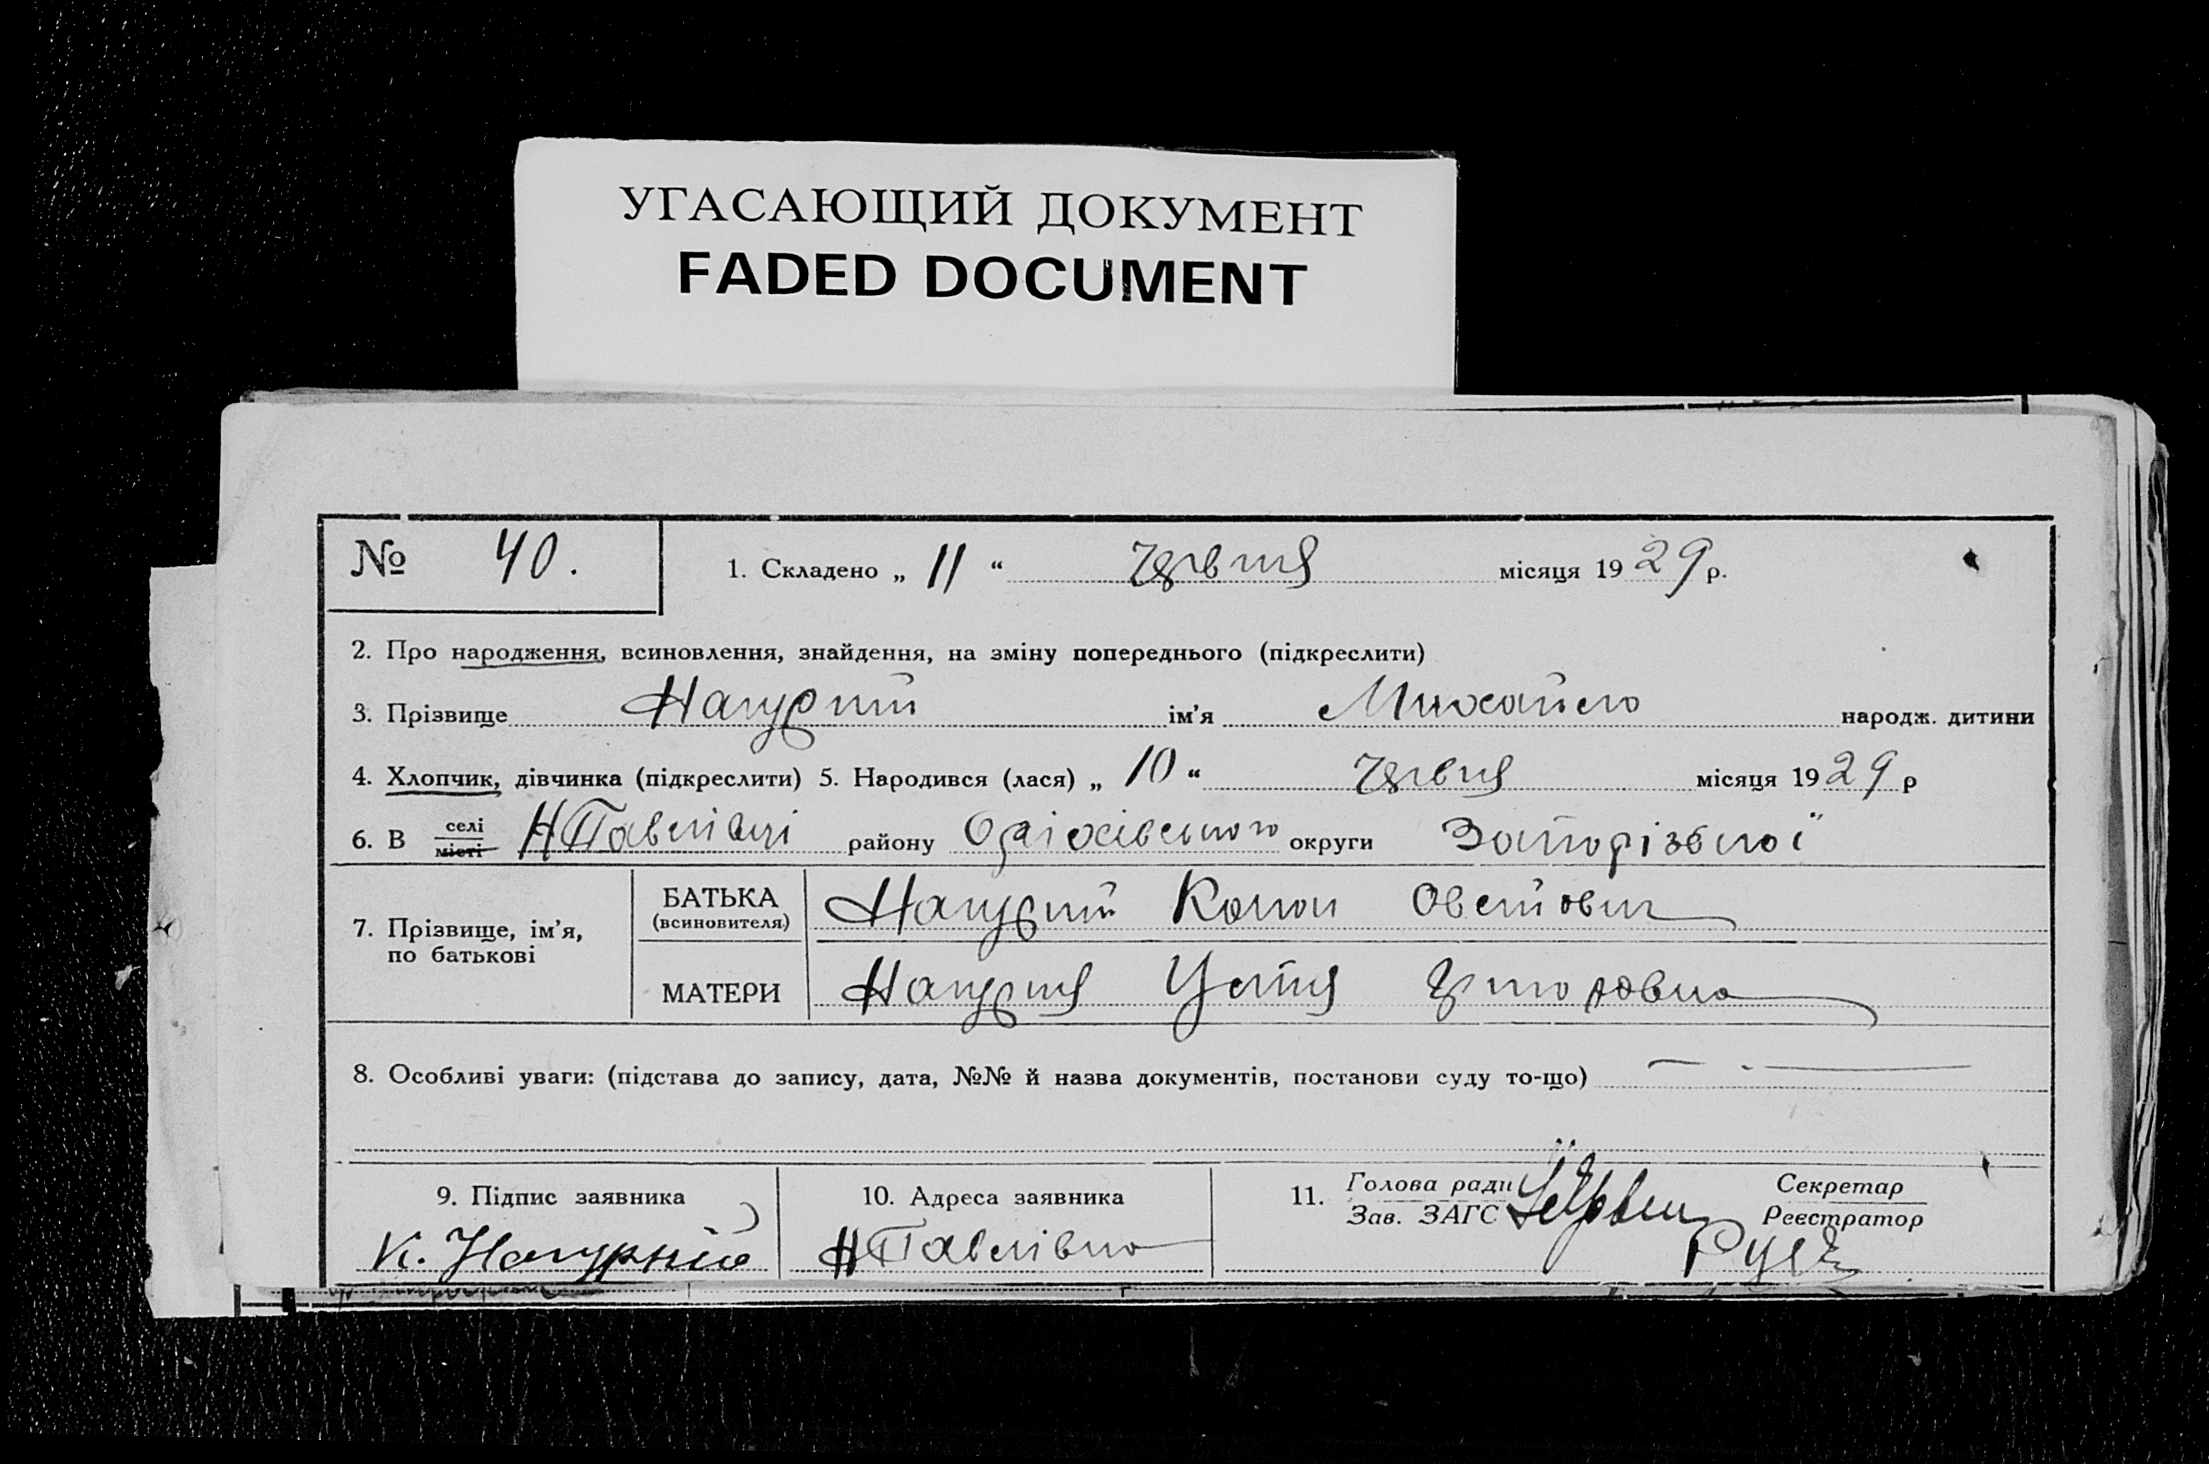 УГАСАЮЩИЙ ДОКУМЕНТ
FADED DOCUMENT
№ 40.
1. Складено „ 11 “ червня місяця 1929 р.
2. Про народження, всиновлення, знайдення, на зміну попереднього (підкреслити)
3. Прізвище Нагурний ім'я Михайло народж. дитини
4. Хлопчик, дівчинка (підкреслити) 5. Народився (лася) „ 10 “ червня місяця 1929 р
6. В селі місті Н Павлівці району Оріхівського округи Запорізької
7. Прізвище, ім'я, по батькові
БАТЬКА (всиновителя) Нагурний Конон
МАТЕРИ Нагурня Устя
8. Особливі уваги: (підстава до запису, дата, №№ й назва документів, постанови суду то-що)
9. Підпис заявника
К. Нагурний
10. Адреса заявника
Н Павлівка
11. Голова ради
Зав. ЗАГС
Секретар
Реєстратор